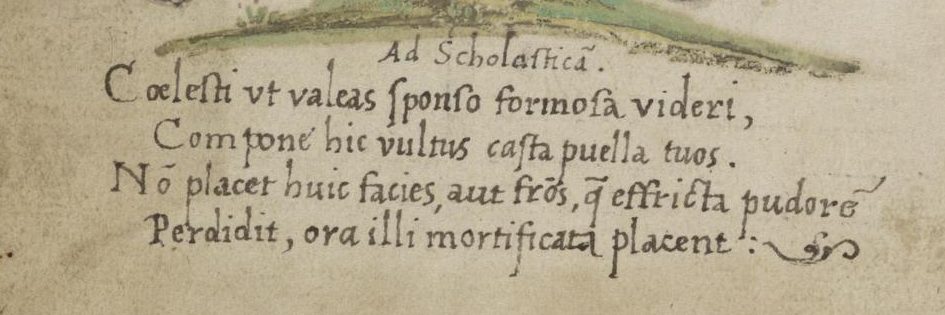 Ad Scholasticā.
Coelesti vt valeas sponso formosa videri,
Compone hic vultus casta puella tuos.
Nō placet huic facies, aut frōs, q̄ effricta pudorē
Perdidit, ora illi mortificata placent :